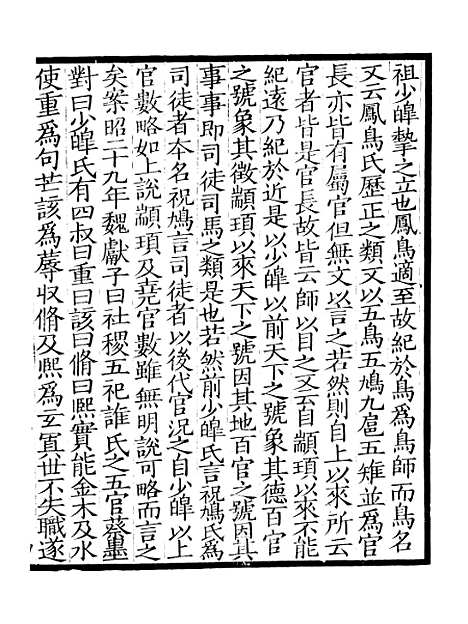 祖少皡摯之立也鳳鳥適至故紀於鳥爲鳥師而鳥名
又云鳳鳥氏歷正之類又以五鳥五鳩九扈五雉並爲官
長亦皆有屬官但無文以言之若然則自上以來所云
官者皆是官長故皆云師以目之又云自顓頊以來不能
紀遠乃紀於近是以少皡以前天下之號象其德百官
之號象其徵顓頊以來天下之號因其地百官之號因其
事事即司徒司馬之類是也若然前少皡氏言祝鳩氏爲
司徒者本名祝鳩言司徒者以後代官況之自少皡以上
官數略如上說顓頊及堯官數雖無明說可略而言之
矣案昭二十九年魏獻子曰社稷五祀誰氏之五官蔡墨
對曰少皡氏有四叔曰重曰該曰脩曰熙實能金木及水
使重爲句芒該爲蓐收脩及熙爲玄冥世不失職遂